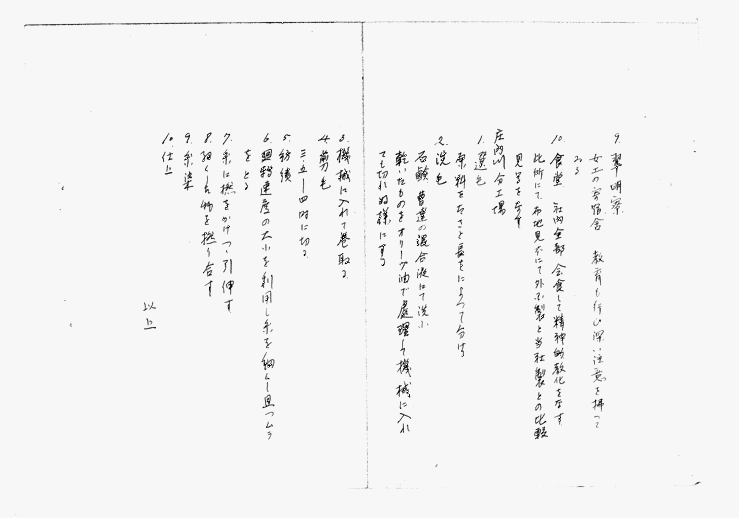 9. 翠明寮
女工の寄宿舎 教育も行い深い注意を拂って
ゐる
10. 食堂 社内全部会食して精神的教化をなす
此所にて布地見本にて外国製と当社製との比較
見学をなす
庄内川分工場
1. 選毛
原料を太さと長さによって分ける
2. 洗毛
石鹸 曹達の混合液にて洗ふ
乾いたものをオリーブ油で處理して機械に入れ
ても切れぬ様にする
3. 機械に入れて巻取る
4. 剪毛
5. 紡績
三.五―四吋に切る
6. 廻轉速度の大小を利用し糸を細くし且つムラ
をとる
7. 糸に撚をかけつゝ引伸す
8. 細くした物を撚り合す
9. 糸染
10. 仕上
以上